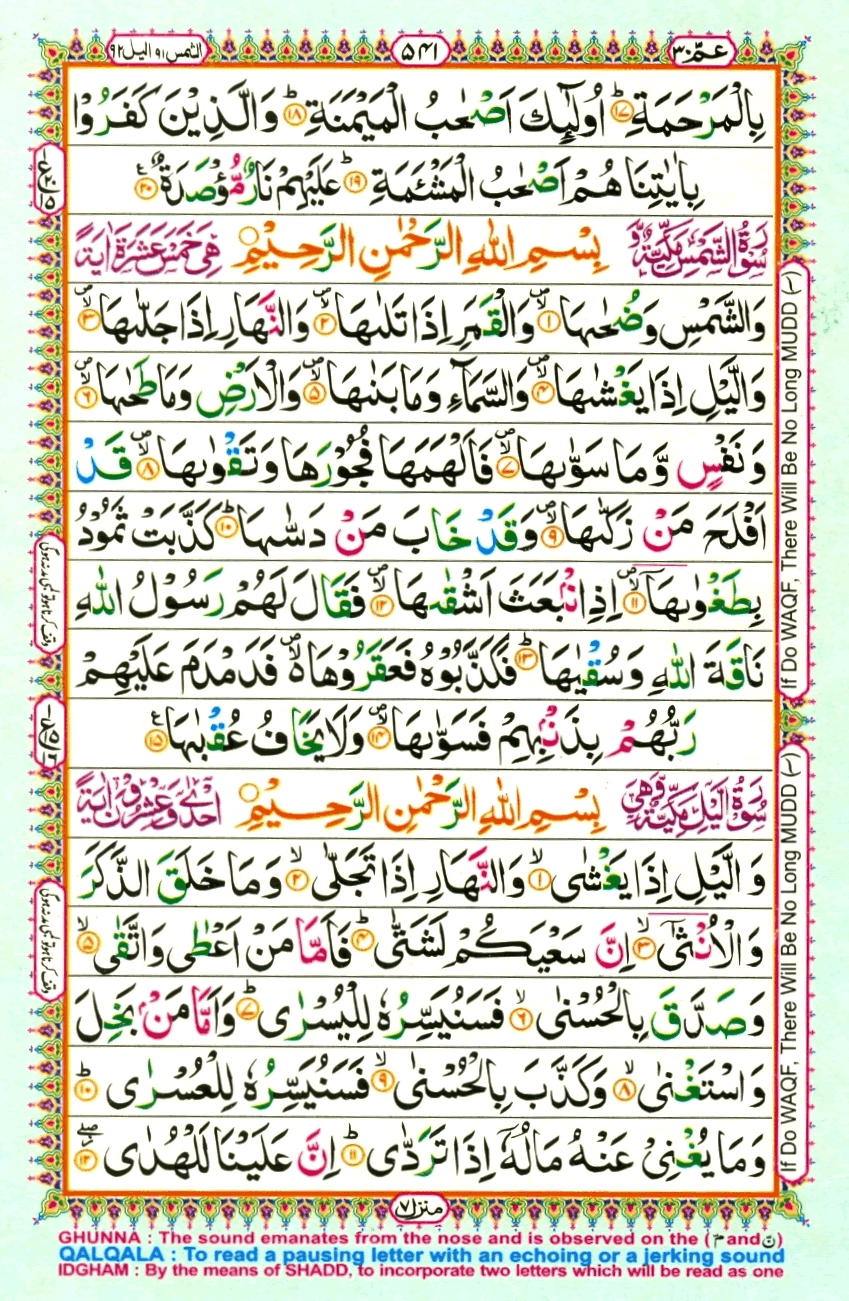 الشمس ٩١ الیل ٩٢
٥٤١
عمّ ٣٠
بِالْمَرْحَمَةِ ﴿١٧﴾ؕ اُولٰٓئِكَ اَصْحٰبُ الْمَيْمَنَةِ ﴿١٨﴾ؕ وَالَّذِيْنَ كَفَرُوْا
بِاٰيٰتِنَا هُمْ اَصْحٰبُ الْمَشْئَمَةِ ﴿١٩﴾ؕ عَلَيْهِمْ نَارٌ مُّؤْصَدَةٌ ﴿٢٠﴾
سُوْرَةُ الشَّمْسِ مَكِّيَّةٌ وَّ بِسْمِ اللّٰهِ الرَّحْمٰنِ الرَّحِيْمِ هِيَ خَمْسَ عَشْرَةَ اٰيَةً
وَالشَّمْسِ وَضُحٰىهَا ﴿١﴾ۙ وَالْقَمَرِ اِذَا تَلٰىهَا ﴿٢﴾ۙ وَالنَّهَارِ اِذَا جَلّٰىهَا ﴿٣﴾ۙ
وَالَّيْلِ اِذَا يَغْشٰىهَا ﴿٤﴾ۙ وَالسَّمَآءِ وَمَا بَنٰىهَا ﴿٥﴾ۙ وَالْاَرْضِ وَمَا طَحٰىهَا ﴿٦﴾ۙ
وَنَفْسٍ وَّمَا سَوّٰىهَا ﴿٧﴾ۙ فَاَلْهَمَهَا فُجُوْرَهَا وَتَقْوٰىهَا ﴿٨﴾ۙ قَدْ
اَفْلَحَ مَنْ زَكّٰىهَا ﴿٩﴾ۙ وَقَدْ خَابَ مَنْ دَسّٰىهَا ﴿١٠﴾ؕ كَذَّبَتْ ثَمُوْدُ
بِطَغْوٰىهَآ ﴿١١﴾ۙ اِذِ انْۢبَعَثَ اَشْقٰىهَا ﴿١٢﴾ۙ فَقَالَ لَهُمْ رَسُوْلُ اللّٰهِ
نَاقَةَ اللّٰهِ وَسُقْيٰهَا ﴿١٣﴾ؕ فَكَذَّبُوْهُ فَعَقَرُوْهَا ۙ فَدَمْدَمَ عَلَيْهِمْ
رَبُّهُمْ بِذَنْۢبِهِمْ فَسَوّٰىهَا ﴿١٤﴾ۙ وَلَا يَخَافُ عُقْبٰهَا ﴿١٥﴾
سُوْرَةُ الَّيْلِ مَكِّيَّةٌ وَّهِيَ بِسْمِ اللّٰهِ الرَّحْمٰنِ الرَّحِيْمِ اِحْدٰى وَّعِشْرُوْنَ اٰيَةً
وَالَّيْلِ اِذَا يَغْشٰى ﴿١﴾ۙ وَالنَّهَارِ اِذَا تَجَلّٰى ﴿٢﴾ۙ وَمَا خَلَقَ الذَّكَرَ
وَالْاُنْثٰٓى ﴿٣﴾ۙ اِنَّ سَعْيَكُمْ لَشَتّٰى ﴿٤﴾ؕ فَاَمَّا مَنْ اَعْطٰى وَاتَّقٰى ﴿٥﴾ۙ
وَصَدَّقَ بِالْحُسْنٰى ﴿٦﴾ۙ فَسَنُيَسِّرُهٗ لِلْيُسْرٰى ﴿٧﴾ؕ وَاَمَّا مَنْۢ بَخِلَ
وَاسْتَغْنٰى ﴿٨﴾ۙ وَكَذَّبَ بِالْحُسْنٰى ﴿٩﴾ۙ فَسَنُيَسِّرُهٗ لِلْعُسْرٰى ﴿١٠﴾ؕ
وَمَا يُغْنِيْ عَنْهُ مَالُهٗٓ اِذَا تَرَدّٰى ﴿١١﴾ؕ اِنَّ عَلَيْنَا لَلْهُدٰى ﴿١٢﴾
If Do WAQF, There Will Be No Long MUDD (~)
If Do WAQF, There Will Be No Long MUDD (~)
منزل ٧
GHUNNA : The sound emanates from the nose and is observed on the (م and ن)
QALQALA : To read a pausing letter with an echoing or a jerking sound
IDGHAM : By the means of SHADD, to incorporate two letters which will be read as one